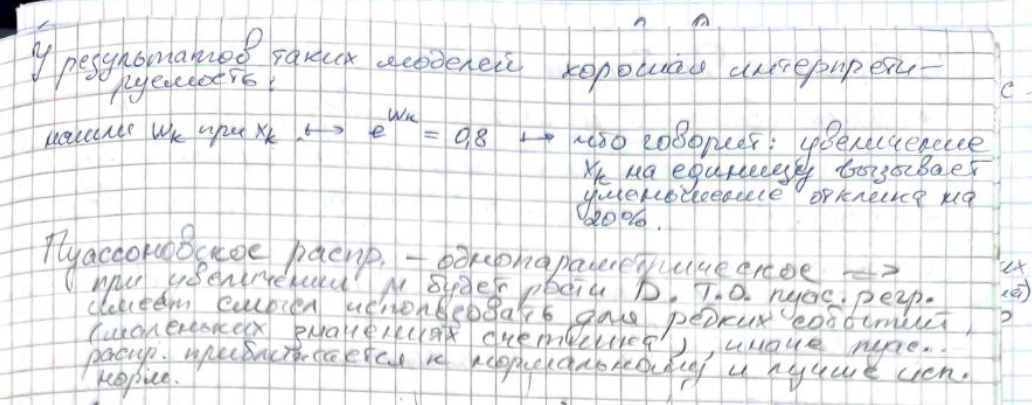 У результатов таких моделей хорошая интерпрети-
руемость:
нашли w_k при x_k ↔ e^{w_k} = 0,8 ↦ что говорит: увеличение
x_k на единицу вызывает
уменьшение отклика на
20%.
Пуассоновское распр. – однопараметрическое =>
при увеличении μ будет расти D. Т.О. пуас. регр.
имеет смысл использовать для редких событий,
(маленьких значениях счетчика), иначе пуас.
распр. приближается к нормальному и лучше исп.
норм.